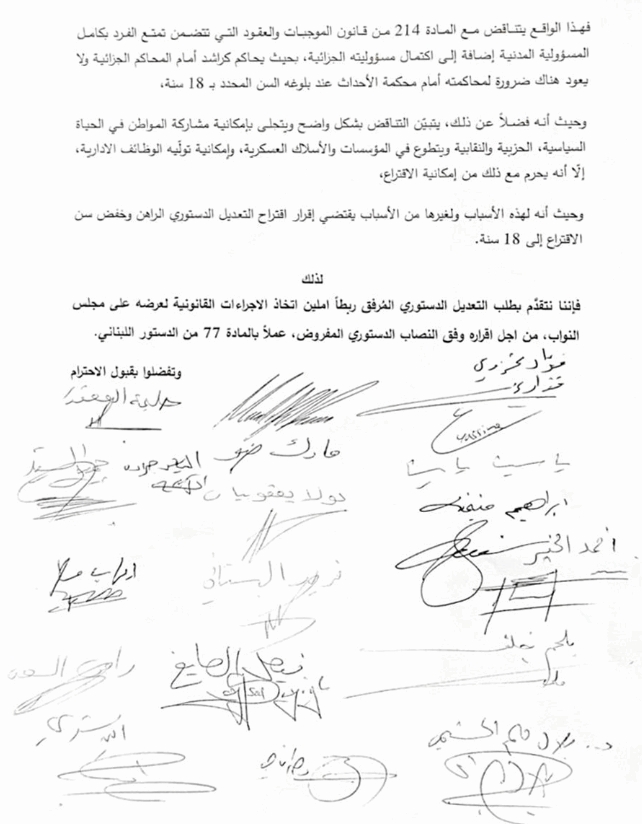 فهذا الواقع يتناقض مع المادة 214 من قانون الموجبات والعقود التي تتضمن تمتع الفرد بكامل
المسؤولية المدنية إضافة إلى اكتمال مسؤوليته الجزائية، بحيث يحاكم كراشد أمام المحاكم الجزائية ولا
يعود هناك ضرورة لمحاكمته أمام محكمة الأحداث عند بلوغه السن المحدد بـ 18 سنة،
وحيث أنه فضلاً عن ذلك، يتبيّن التناقض بشكل واضح ويتجلى بإمكانية مشاركة المواطن في الحياة
السياسية، الحزبية والنقابية ويتطوع في المؤسسات والأسلاك العسكرية، وإمكانية تولّيه الوظائف الادارية،
إلّا أنه يحرم مع ذلك من إمكانية الاقتراع،
وحيث أنه لهذه الأسباب ولغيرها من الأسباب يقتضي إقرار اقتراح التعديل الدستوري الراهن وخفض سن
الاقتراع إلى 18 سنة.
لذلك
فإننا نتقدَّم بطلب التعديل الدستوري المُرفق ربطاً املين اتخاذ الاجراءات القانونية لعرضه على مجلس
النواب، من اجل اقراره وفق النصاب الدستوري المفروض، عملاً بالمادة 77 من الدستور اللبناني.
وتفضلوا بقبول الاحترام
فؤاد مخزومي
حليمة القعقور
مارك ضو
ياسين ياسين
بولا يعقوبيان
ابراهيم منيمنه
احمد الخير
فيصل الصايغ
ملحم خلف